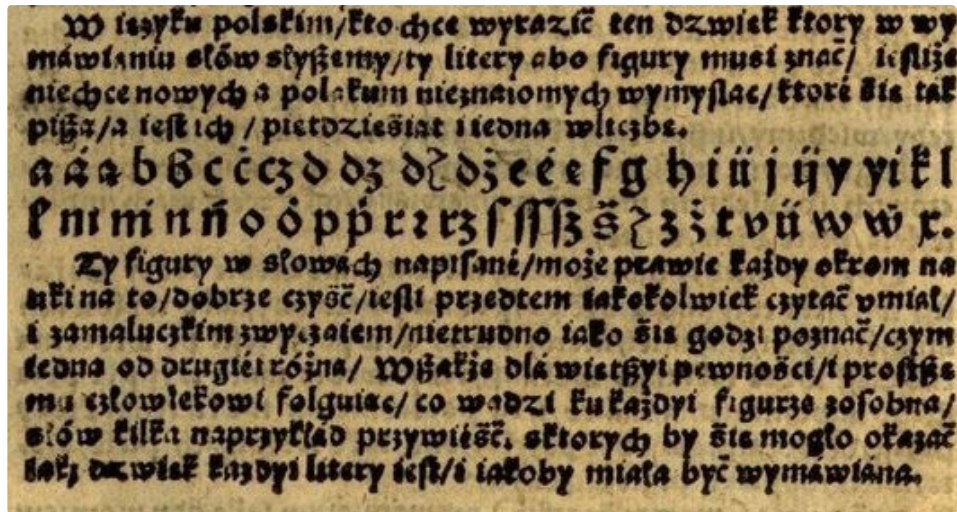 W ięzyku polskim/kto chce wyrazić ten dzwięk ktory w wy
máwianiu słów słyszemy/ty litery abo figury musi znáć/ ieśliże
niechce nowych a polakum nieznaiomych wymyslac/ktoré się ták
piszą/a iest ich / pięćdziesiąt i iedna wliczbę.
a á ą b b́ c ć cz d dz dź dż e é ę f g h i ii j ij y yi k l
ł m ḿ n ń o ó p ṕ r rz ſ ſſ ſz ś z ż t v ü w ẃ x.
Ty figury w słowách nápiſané/może práwie każdy okrom na
uki na to/dobrze czyść/ieſli przedtem iakokolwiek czytać vmiał/
i zamaluczkim zwyczaiem/nietrudno iako się godzi poznać/czym
iedna od drugiéi różna/ Wſzákże dlá więtſzyi pewności/i proſtſze
mu człowiekowi folguiąc/ co wadzi ku każdyi figurze zoſobna/
słów kilka náprzykłád przywieść. sktorych by się mogło okazáć
iáki dzwięk każdyi litery ieſt/i iakoby miáła być wymáwiána.